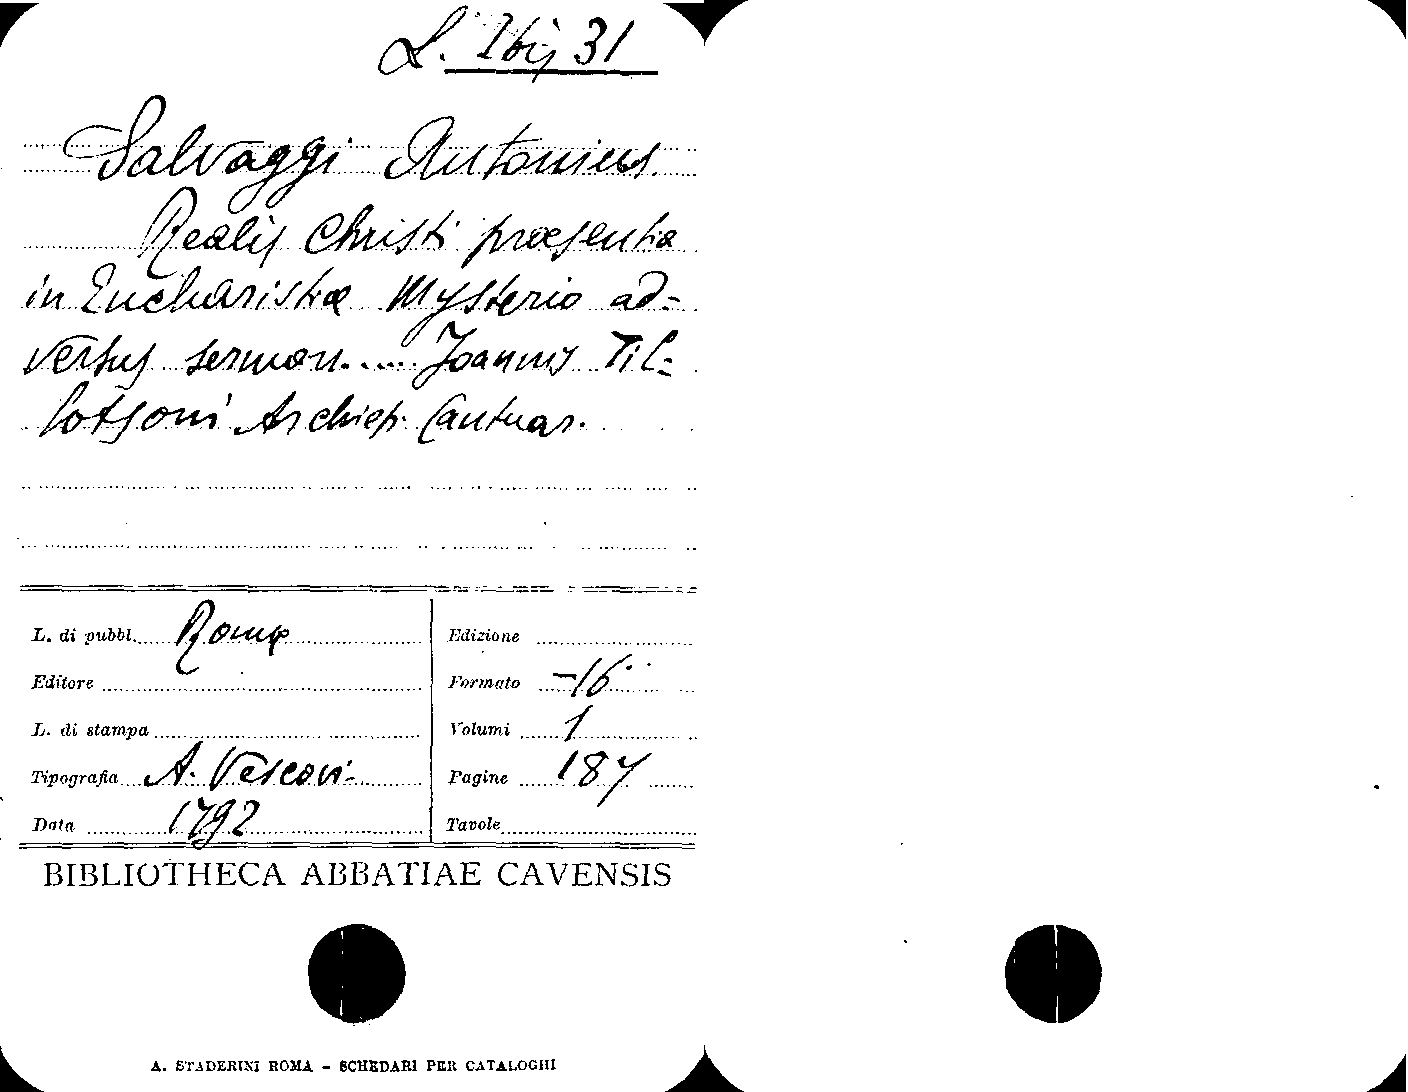 L. I bis 31
Salvaggi Antonius
Realis Christi praesentia
in Eucharistiae Mysterio ad=
versus sermon..... Joannis Til=
lotsoni Archiep. Cantuar.
L. di pubbl. Romae Edizione
Editore Formato -16°
L. di stampa Volumi 1
Tipografia A. Vescovi Pagine 187
Data 1792 Tavole
BIBLIOTHECA ABBATIAE CAVENSIS
A. STADERINI ROMA - SCHEDARI PER CATALOGHI